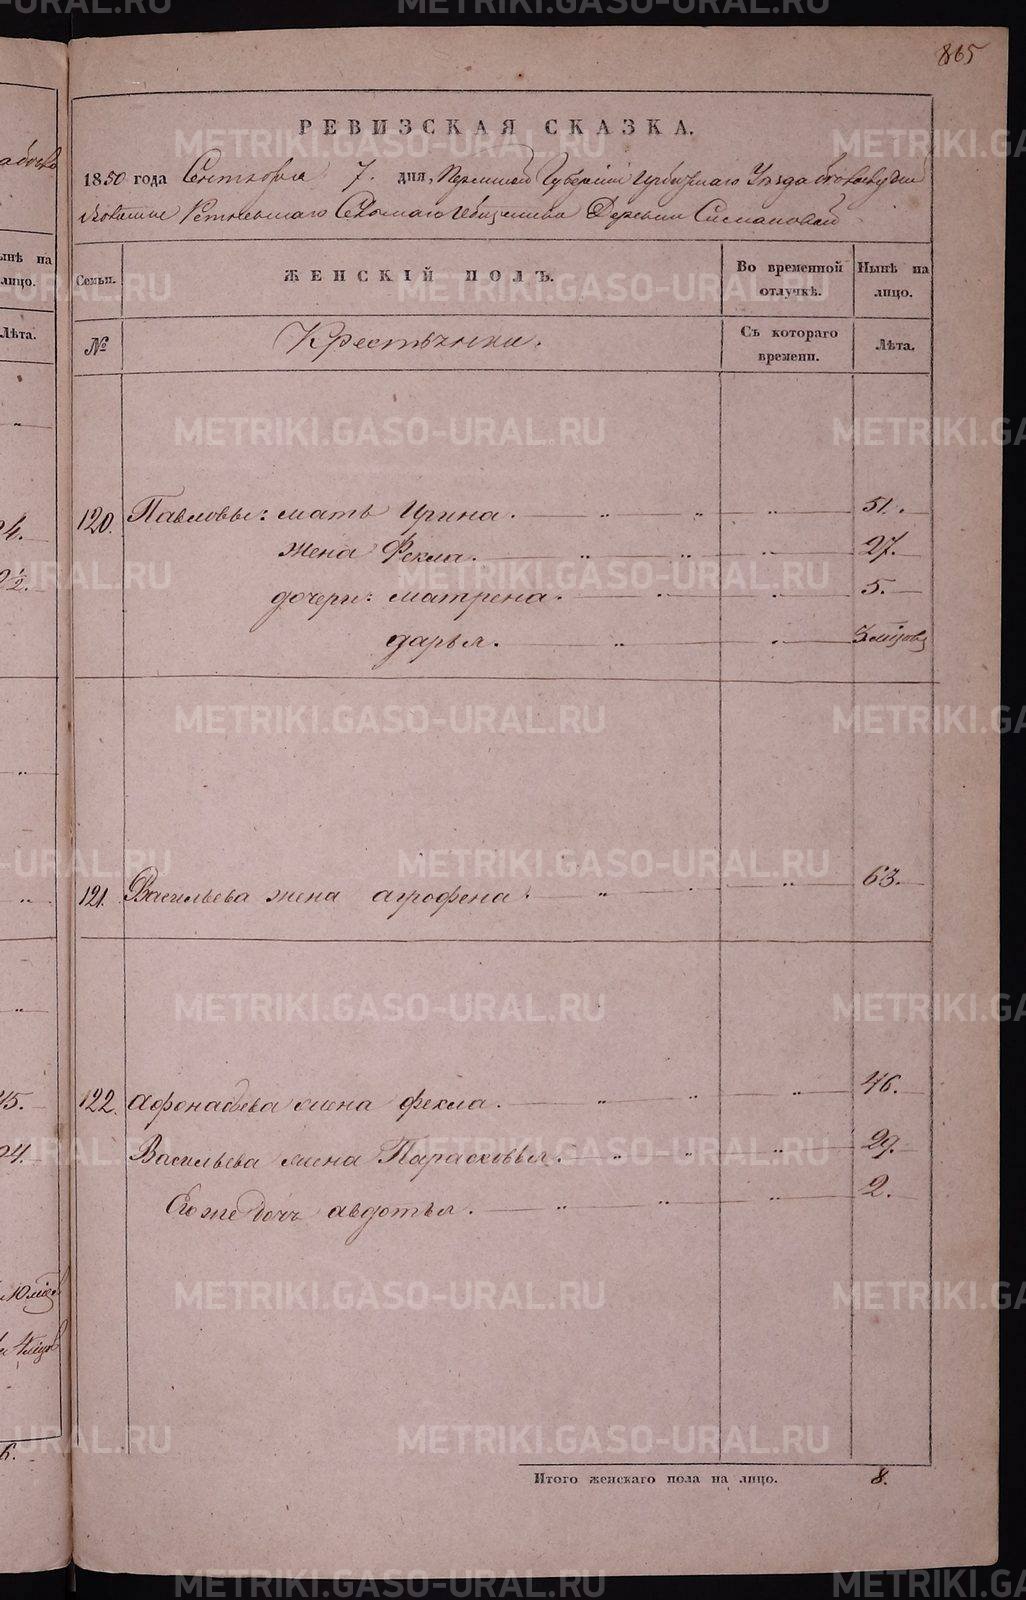 865
РЕВИЗСКАЯ СКАЗКА.
1850 года Сентября 7. дня, Пермской Губернии Ирбитскаго Уезда
Сельскаго Общества Деревни
Семьи.
ЖЕНСКІЙ ПОЛЪ.
Во временной отлучкѣ.
Нынѣ на лицо.
№
Крестьянки.
Съ котораго времени.
Лѣта.
120. Павловы: мать Ирина. 51.
жена Фекла. 27.
дочери: матрена. 5.
дарья. 3 мѣсяцов
121. Васильева жена агрофена. 63.
122. Афонасьева жена фекла. 46.
Васильева жена Парасковья. 29.
Его же дочь авдотья. 2.
Итого женскаго пола на лицо. 8.
ынѣ на
лицо.
Лѣта.
METRIKI.GASO-URAL.RU